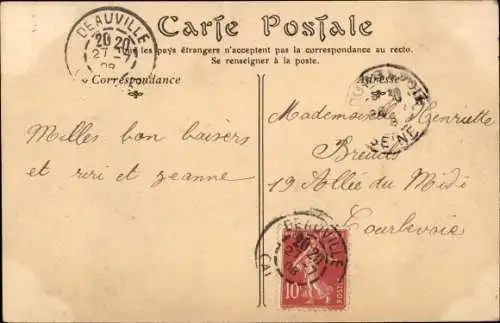 Carte Postale
les pays étrangers n'acceptent pas la correspondance au recto.
Se renseigner à la poste.
Correspondance
Adresse
DEAUVILLE
20 20
27
Mademoiselle Henriette
19 Allée du Midi
Courbevoie
Milles bon baisers
et riri et Jeanne
SEINE
DEAUVILLE
20 20
10
POSTES